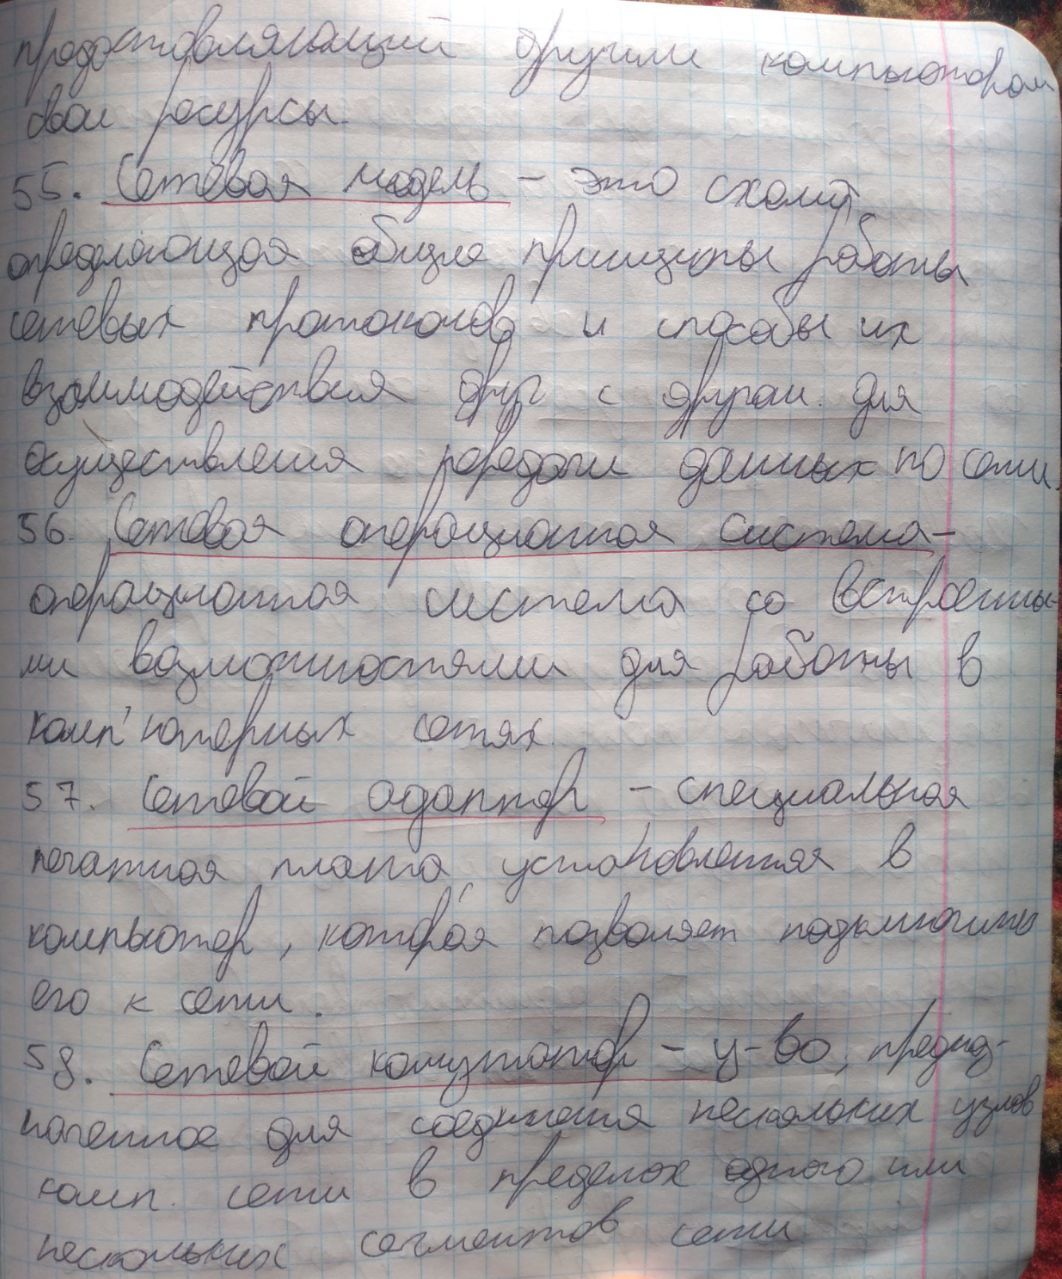 предоставляющий другим компьютерам
свои ресурсы.
55. Сетевая модель - это схема,
определяющая общие принципы работы
сетевых протоколов и способы их
взаимодействия друг с другом для
осуществления передачи данных по сети.
56. Сетевая операционная система -
операционная система со встроенны-
ми возможностями для работы в
комп'ютерных сетях.
57. Сетевой адаптер - специальная
печатная плата, установленная в
компьютер, которая позволяет подключить
его к сети.
58. Сетевой комутатор - у-во, предназ-
наченное для соединения нескольких узлов
комп. сети в пределах одного или
нескольких сегментов сети